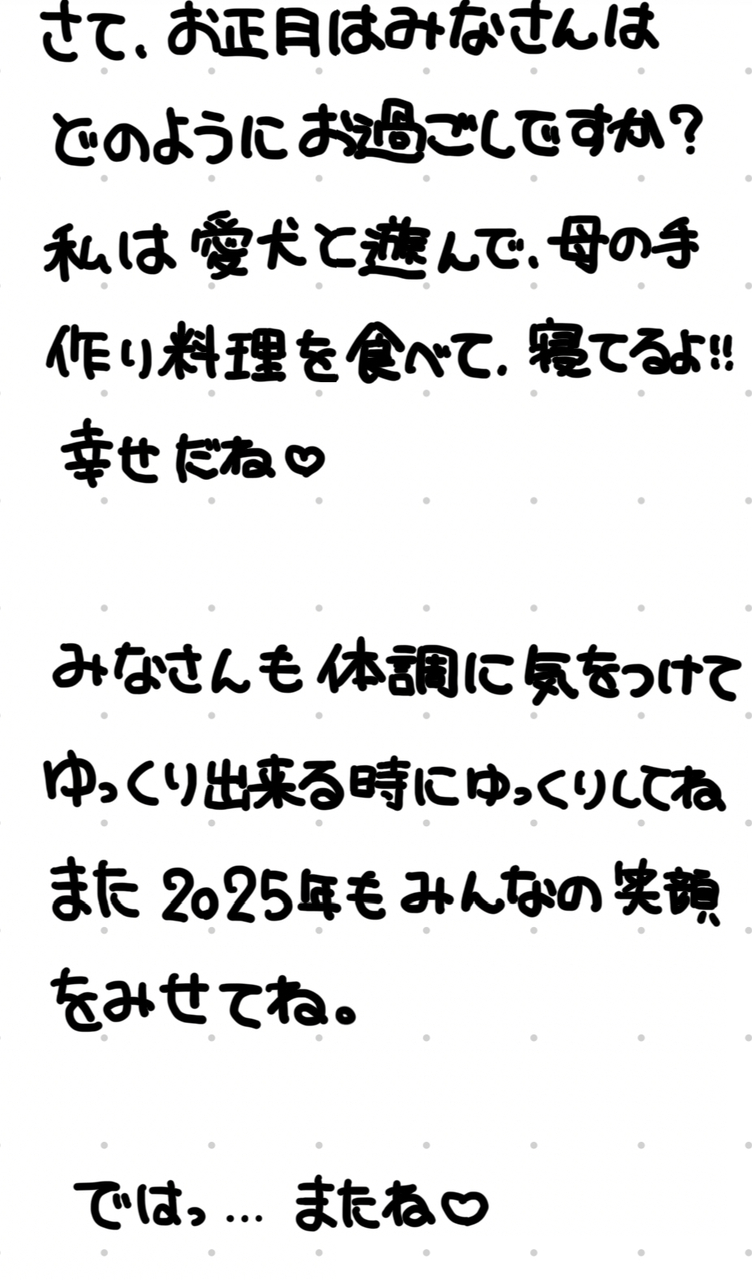 さて、お正月はみなさんは
どのようにお過ごしですか?
私は愛犬と遊んで、母の手
作り料理を食べて、寝てるよ!!
幸せだね♡
みなさんも体調に気をつけて
ゆっくり出来る時にゆっくりしてね
また2025年もみんなの笑顔
をみせてね。
ではっ…またね♡